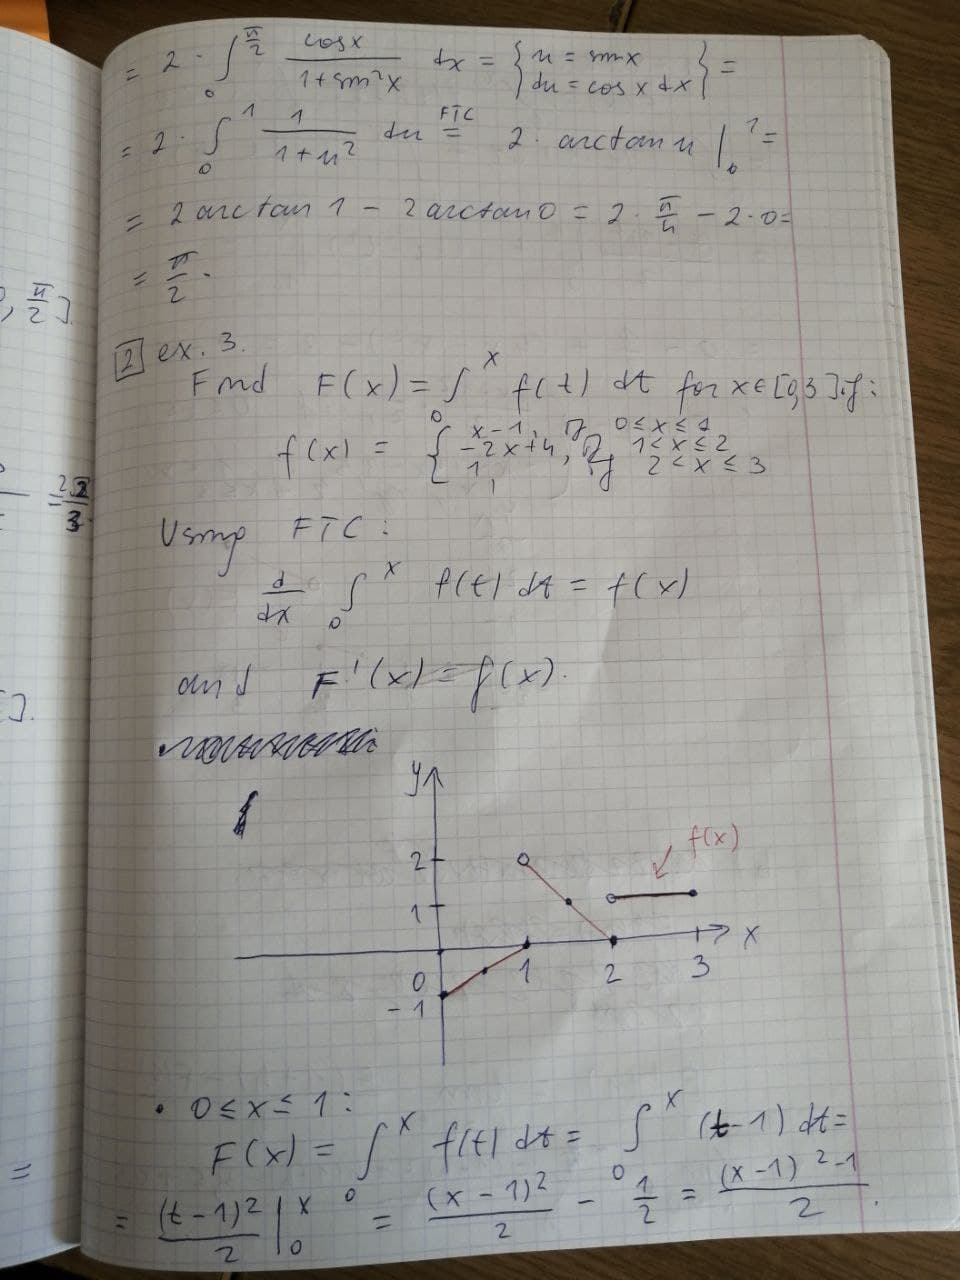 = 2 · ∫₀^(π/2) cosx / (1+sin²x) dx = { u = sinx
du = cos x dx } =
= 2 · ∫₀¹ 1 / (1+u²) du FTC = 2 · arctan u |₀¹ =
= 2 arctan 1 − 2 arctan 0 = 2 · π/4 − 2 · 0 =
= π/2 .
, π/2 ].
2 ex. 3.
Find F(x) = ∫₀^x f(t) dt for x ∈ [0,3] if:
f(x) = { x−1, if 0 ≤ x ≤ 1
−2x+4, if 1 < x ≤ 2
1, if 2 < x ≤ 3
Using FTC:
d/dx ∫₀^x f(t) dt = f(x)
and F'(x) = f(x).
].
y
f(x)
2
1
x
0 1 2 3
−1
• 0 ≤ x ≤ 1 :
F(x) = ∫₀^x f(t) dt = ∫₀^x (t−1) dt =
=
= (t−1)²/2 |₀^x = (x−1)²/2 − 1/2 = ((x−1)²−1)/2 .